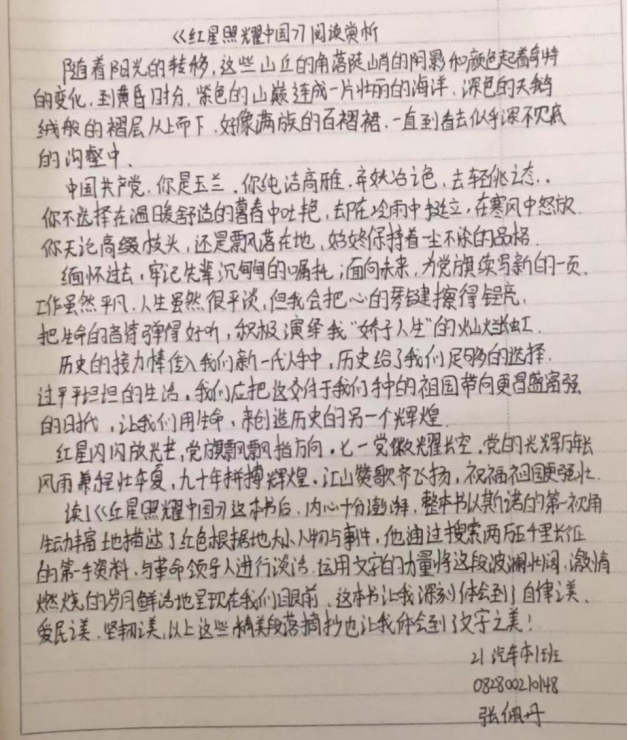 《红星照耀中国》阅读赏析
随着阳光的转移,这些山丘的角落陡峭的阴影和颜色起着奇特
的变化.到黄昏时分.紫色的山巅连成一片壮丽的海洋.深色的天鹅
绒般的褶层从上而下.好像满族的百褶裙.一直到看去似乎深不见底
的沟壑中.
中国共产党.你是玉兰.你纯洁高雅.弃妖冶之色,去轻佻之态..
你不选择在温暖舒适的暮春中吐艳,却在冷雨中挺立,在寒风中怒放.
你无论高缀枝头,还是飘落在地,始终保持着一尘不染的品格.
缅怀过去,牢记先辈沉甸甸的嘱托;面向未来,为党旗续写新的一页.
工作虽然平凡.人生虽然很平淡,但我会把心的琴键擦得锃亮.
把生命的音符弹得好听,积极演绎我"娇子人生"的灿烂虹.
历史的接力棒传入我们新一代人手中,历史给了我们足够的选择.
过平平坦坦的生活,我们应把这交付于我们手中的祖国带向更昌盛富强
的时代,让我们用生命,来创造历史的另一个辉煌.
红星闪闪放光芒,党旗飘飘指方向.七一党徽耀长空.党的光辉万年长
风雨兼程壮华夏,九十年拼搏辉煌.江山赞歌齐飞扬,祝福祖国更强壮.
读了《红星照耀中国》这本书后.内心十分澎湃,整本书以斯诺的第一视角
生动丰富地描述了红色根据地大小人物与事件,他通过搜索两万五千里长征
的第一手资料.与革命领导人进行谈话.运用文字的力量将这段波澜壮阔、激情
燃烧的岁月鲜活地呈现在我们眼前.这本书让我深刻体会到了自律之美、
爱民之美.坚韧之美,以上这些精美段落摘抄也让我体会到了文字之美!
21汽车本1班
082800210148
张佩丹